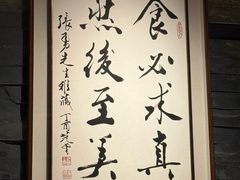 食必求真
然後至美
張勇先生雅藏 丁酉